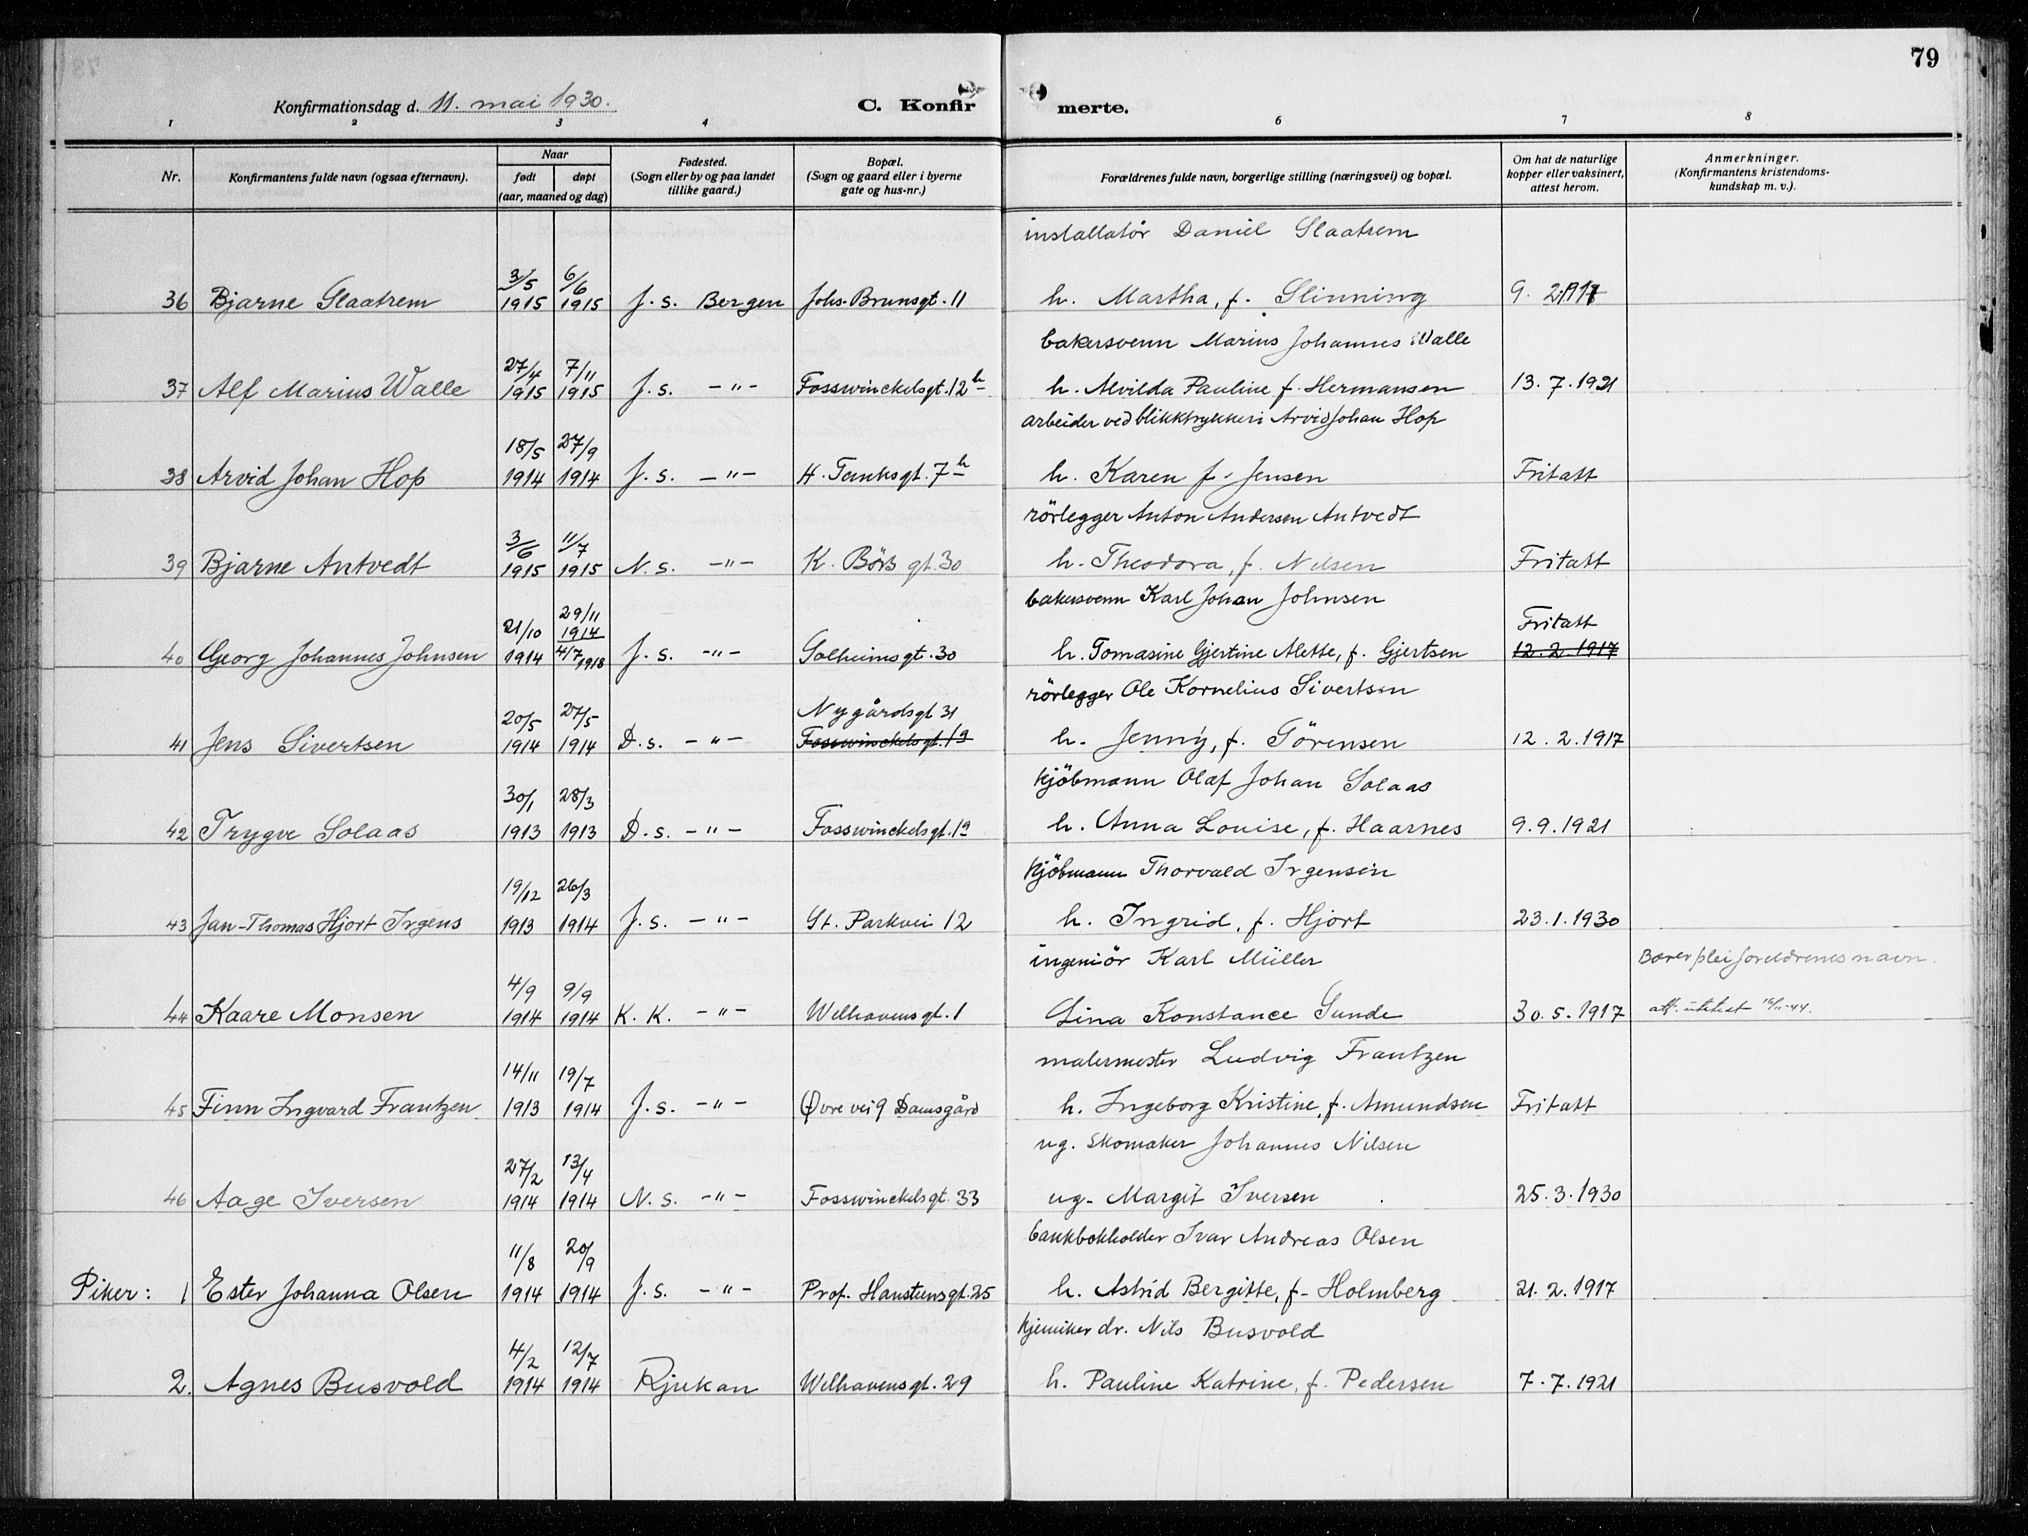 79
Konfirmationsdag d. 11. mai 1930.
C. Konfir merte.
1 2 3 4 6 7 8
Nr.
Konfirmantens fulde navn (ogsaa efternavn).
Naar
født døpt
(aar, maaned og dag)
Fødested.
(Sogn eller by og paa landet
tillike gaard.)
Bopæl.
(Sogn og gaard eller i byerne
gate og hus-nr.)
Forældrenes fulde navn, borgerlige stilling (næringsvei) og bopæl.
Om hat de naturlige
kopper eller vaksinert,
attest herom.
Anmerkninger.
(Konfirmantens kristendoms-
kundskap m. v.).
installatør Daniel Slaatrem
3/5 6/6
36 Bjarne Slaatrem 1915 1915 J. s. Bergen Johs. Brunsgt. 11 h. Martha, f. Slinning 9. 2. 1917
bakersvenn Marius Johannes Walle
27/4 7/11
37 Alf Marius Walle 1915 1915 J. s. -"- Fosswinckelsgt. 12 b h. Alvilda Pauline f. Hermansen 13. 7. 1921
arbeider ved blikktrykkeri Arvid Johan Hop
18/5 27/9
38 Arvid Johan Hop 1914 1914 J. s. -"- H. Tanksgt. 7 b h. Karen f. Jensen Fritatt
rörlegger Anton Andersen Antvedt
3/6 11/7
39 Bjarne Antvedt 1915 1915 N. s. -"- K. Börs gt. 30 h. Theodora, f. Nilsen Fritatt
bakersvenn Karl Johan Johnsen
29/11
21/10 1914 Fritatt
40 Georg Johannes Johnsen 1914 4/7 1918 J. s. -"- Solheimsgt. 30 h. Tomasine Gjertine Mette, f. Gjertsen 12. 2. 1917
rörlegger Ole Kornelius Sivertsen
20/5 27/5 Nygårdsgt 31
41 Jens Sivertsen 1914 1914 D. s. -"- Fosswinckelsgt. 19 h. Jenny, f. Sörensen 12. 2. 1917
kjöbmann Olaf Johan Solaas
30/1 28/3
42 Trygve Solaas 1913 1913 D. s. -"- Fosswinckelsgt. 19 h. Anna Louise, f. Haarnes 9. 9. 1921
kjöbmann Thorvald Irgensen
19/12 26/3
43 Jan-Thomas Hjort Irgens 1913 1914 J. s. -"- St. Parkvei 12 h. Ingrid, f. Hjort 23. 1. 1930
ingeniör Karl Müller Bærer pleiforeldrenes navn.
4/9 9/9
44 Kaare Monsen 1914 1914 K. K. -"- Welhavensgt. 1 Lina Konstance Sunde 30. 5. 1917 att. utstedt 16/11-44.
malermester Ludvig Frantzen
14/11 19/7
45 Finn Ingvard Frantzen 1913 1914 J. s. -"- Øvre vei 9 Damsgård h. Ingeborg Kristine, f. Amundsen Fritatt
ug. skomaker Johannes Nilsen
27/2 13/4
46 Aage Iversen 1914 1914 N. s. -"- Fosswinckelsgt. 33 ug. Margit Iversen 25. 3. 1930
bankbokholder Ivar Andreas Olsen
11/8 20/9
Piker: 1 Ester Johanna Olsen 1914 1914 J. s. -"- Prof. Hansteensgt. 25 h. Astrid Bergitte, f. Holmberg 21. 2. 1917
kjemiker dr. Nils Busvold
4/2 12/7
2. Agnes Busvold 1914 1914 Rjukan Welhavensgt. 29 h. Pauline Katrine, f. Pedersen 7. 7. 1921